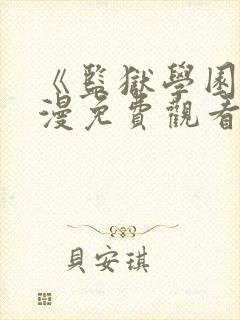 《監獄學園
漫免費觀看
貝安琪